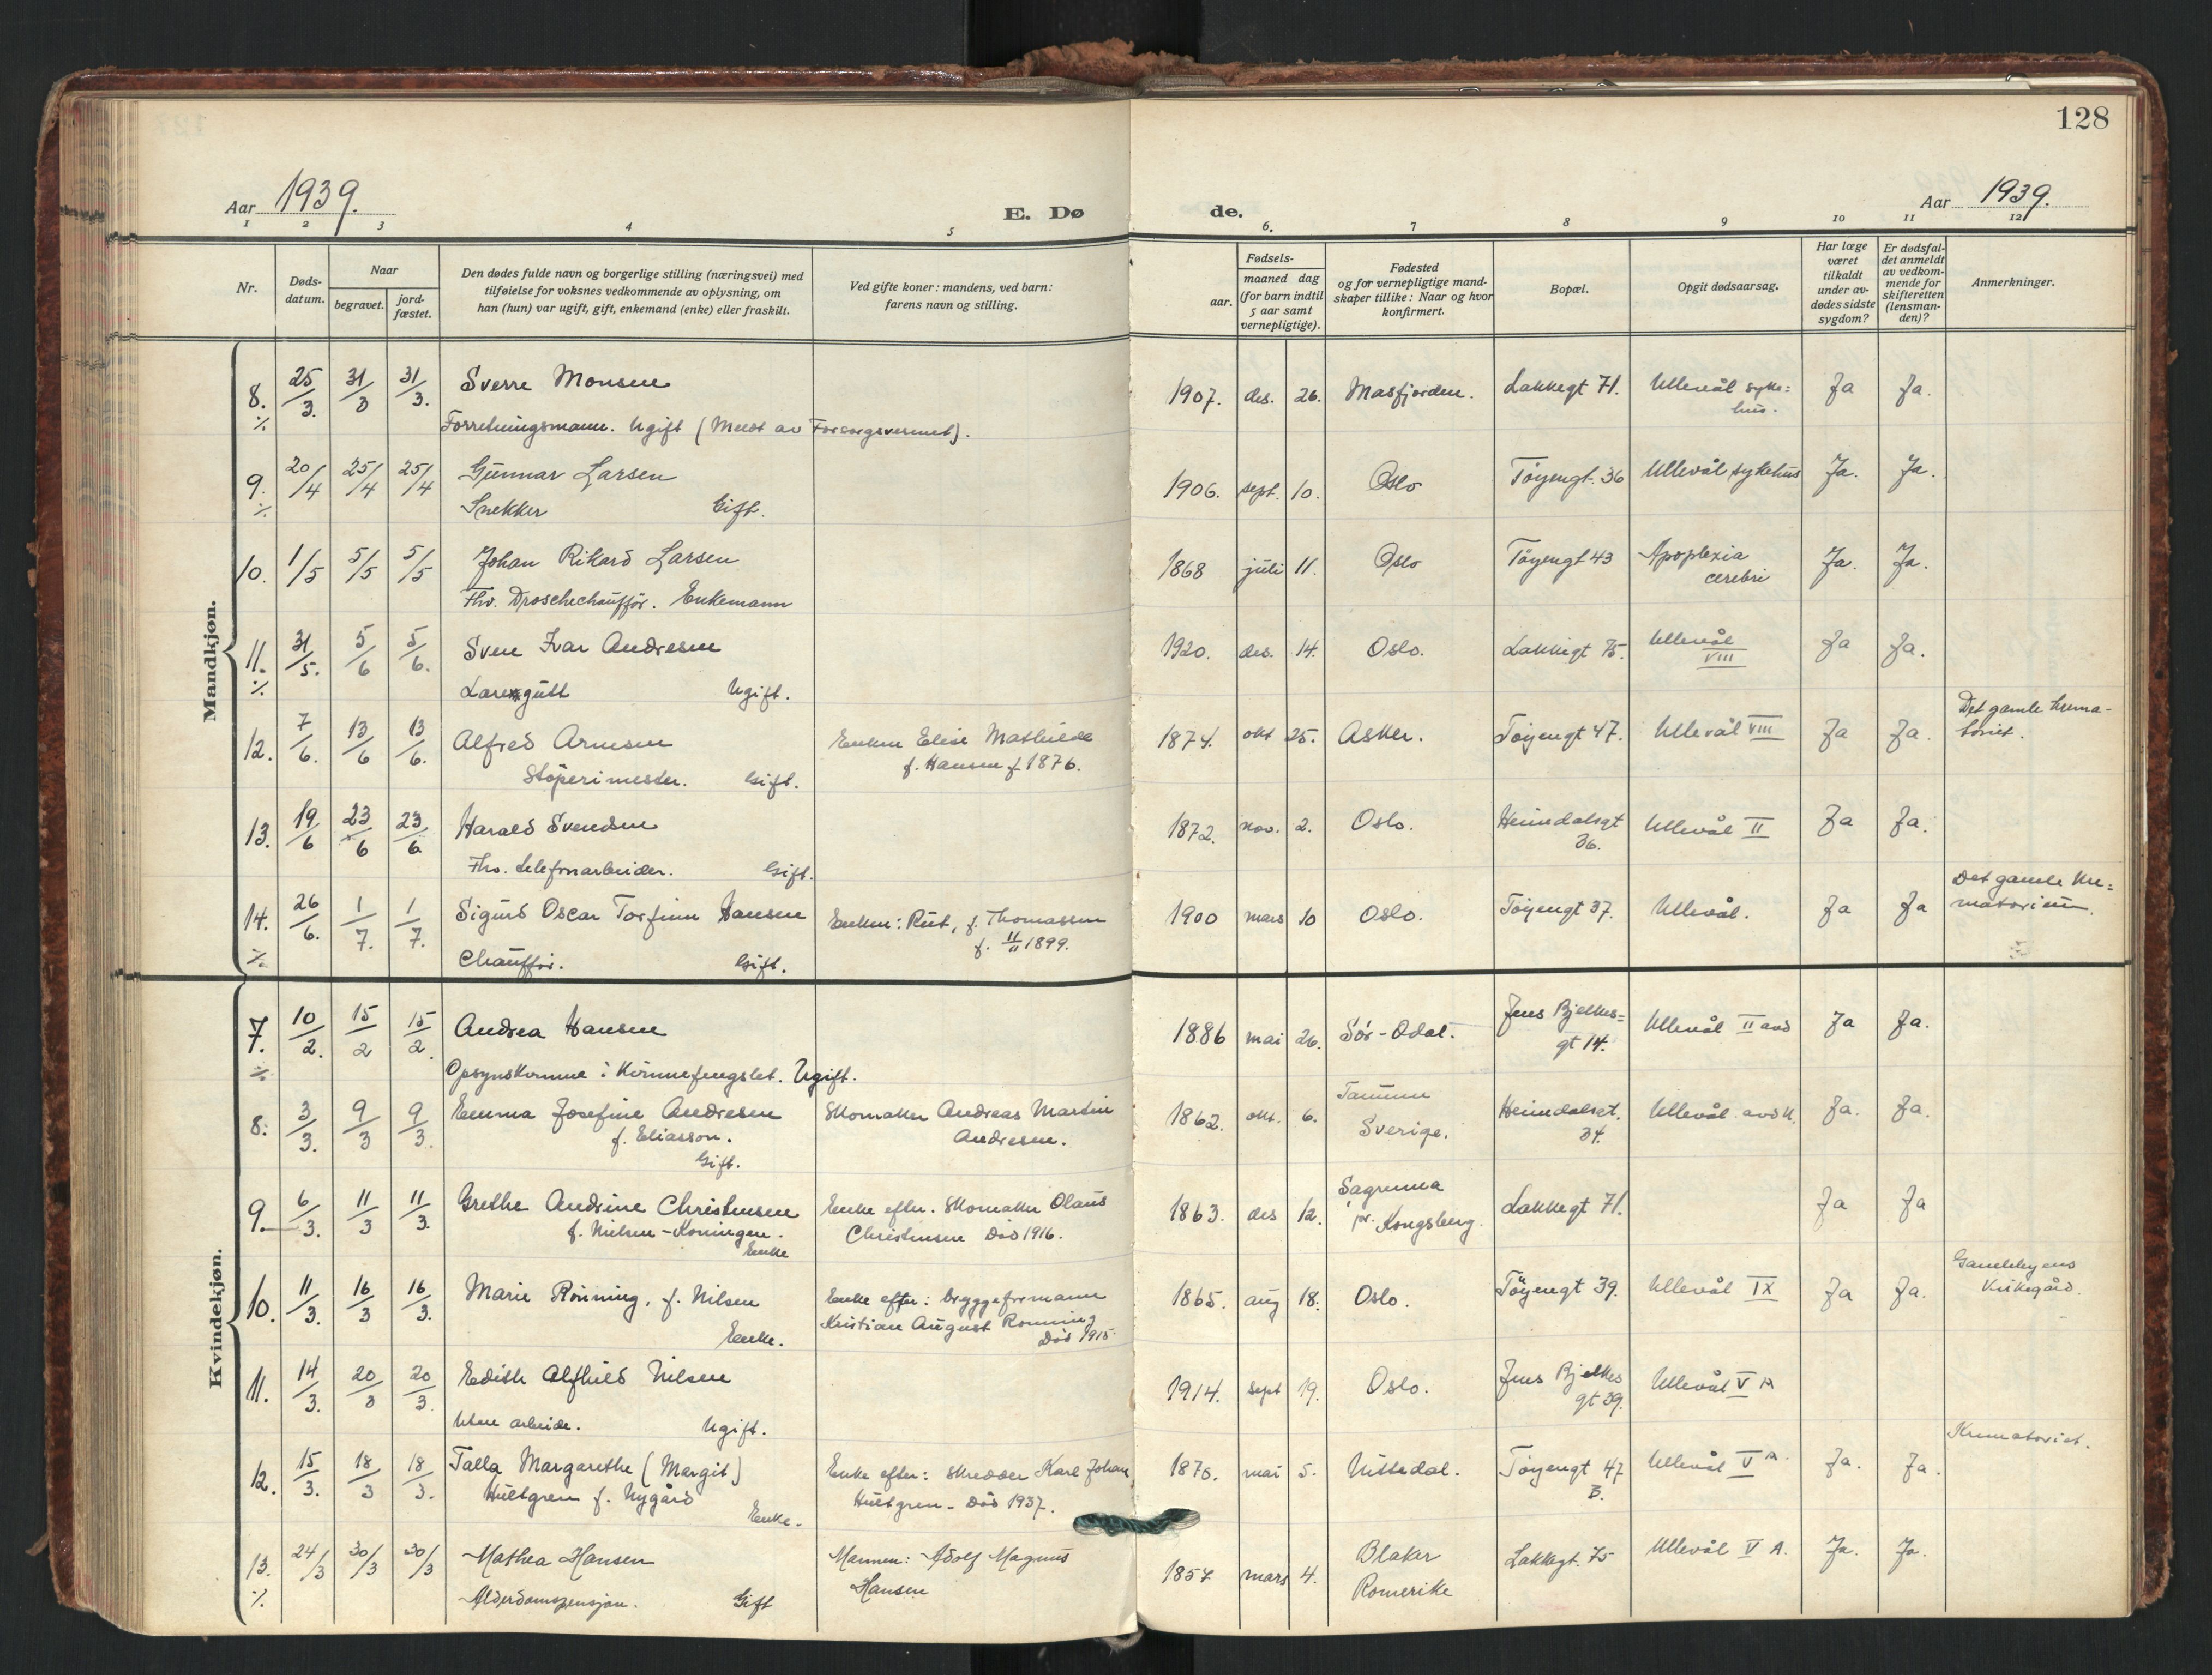 128
Aar 1939.
E. Dø
de.
Aar 1939.
1 2 3 4 5 6. 7 8 9 10 11 12
Nr.
Døds-
datum.
Naar
begravet.
jord-
fæstet.
Den dødes fulde navn og borgerlige stilling (næringsvei) med
tilføielse for voksnes vedkommende av oplysning, om
han (hun) var ugift, gift, enkemand (enke) eller fraskilt.
Ved gifte koner: mandens, ved barn:
farens navn og stilling.
Fødsels-
aar.
maaned dag
(for barn indtil
5 aar samt
vernepligtige).
Fødested
og for vernepligtige mand-
skaper tillike: Naar og hvor
konfirmert.
Bopæl.
Opgit dødsaarsag.
Har læge
været
tilkaldt
under av-
dødes sidste
sygdom?
Er dødsfal-
det anmeldt
av vedkom-
mende for
skifteretten
(lensman-
den)?
Anmerkninger.
Mandkjøn.
8. 25/3. 31/3 31/3. Sverre Monsen 1907. des. 26. Masfjorden. Lakkegt 71. Ullevål syke=
hus. Ja Ja.
%
Forretningsmann. Ugift (Meldt av Forsorgsvesenet).
9. 20/4 25/4 25/4 Gunnar Larsen 1906. sept. 10. Oslo Tøyengt. 36 Ullevål sykehus Ja. Ja.
% Snekker Gift.
10. 1/5 5/5 5/5 Johan Rikard Larsen 1868 juli 11. Oslo Tøyengt 43 Apoplexia
cerebri Ja. Ja.
Fhv. Droschechauffør. Enkemann
11. 31/5. 5/6 5/6. Sven Ivar Andresen 1920. des. 14. Oslo. Lakkegt 75. Ullevål
VIII Ja Ja.
% gutt Ugift.
12. 7/6. 13/6 13/6. Alfred Arnesen Enken Elise Mathilde 1874. okt 25. Asker. Tøyengt 47. Ullevål VIII Ja Ja. Det gamle krema-
toriet.
Støperimester. Gift. f. Hansen f 1876.
13. 19/6 23/6 23/6 Harald Svendsen 1872. nov. 2. Oslo. Heimdalsgt
36. Ullevål II Ja Ja.
Fhv. telefonarbeider. Gift.
14. 26/6. 1/7. 1/7. Sigurd Oscar Torfinn Hansen Enken: Rut, f. Thomassen 1900 mars 10 Oslo. Tøyengt 37. Ullevål. Ja Ja Det gamle kre=
matorium.
% Chauffør. Gift. f. 11/11 1899.
Kvindekjøn.
7. 10/2. 15/2 15/2. Andrea Hansen 1886 mai 26. Sør-Odal. Jens Bjelkes=
gt 14. Ullevål II avd Ja Ja.
%
Opsynskvinne i Kvinnefengslet. Ugift.
8. 3/3. 9/3 9/3. Emma Josefine Andresen Skomaker Andreas Martin 1862. okt. 6. Tanum
Sverige. Heimdalsgt.
34. Ullevål. Ja. Ja.
f. Eliasson. Andresen.
Gift.
9. 6/3. 11/3 11/3. Grethe Andrine Christensen Enke efter. Skomaker Olaus 1863. des 12. Sagrenna
pr. Kongsberg. Lakkegt 71. Ja Ja
f. Nielsen-Koningen. Christensen Død 1916.
Enke
10. 11/3. 16/3 16/3. Marie Rønning, f. Nilsen Enke efter: bryggeformann 1865. aug 18. Oslo. Tøyengt 39. Ullevål IX Ja Ja. Gamlebyens
Kirkegård.
Enke. Kristian August Rønning
Død 1915.
11. 14/3. 20/3 20/3. Edith Alfhild Nilsen 1914. sept 19. Oslo. Jens Bjelkes
gt 39. Ullevål V A
Uten arbeide. Ugift.
12. 15/3. 18/3 18/3. Talla Margarethe (Margit) Enke efter: skredder Karl Johan mai 5. Nittedal. Tøyengt 47
B. Ullevål V A. Ja. Ja. Krematoriet.
Hultgren f. Nygård Hultgren - Død 1937.
Enke.
13. 24/3 30/3 30/3 Mathea Hansen Mannen: Adolf Magnus 1857 mars 4. Blaker
Romerike Lakkegt. 75 Ullevål V A. Ja. Ja.
% Alderdomspensjon. Gift Hansen